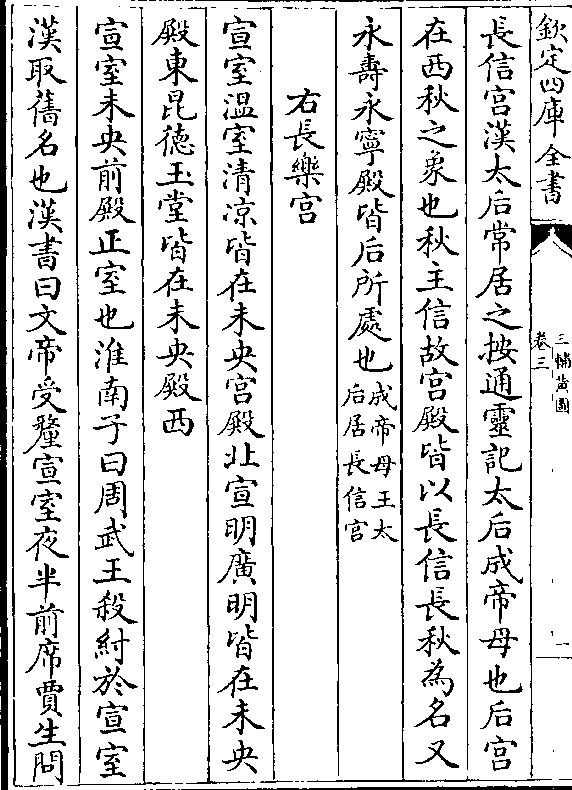 欽定四庫全書
三輔黃圖
卷三
二
長信宮漢太后常居之按通靈記太后成帝母也后宮
在西秋之象也秋主信故宮殿皆以長信長秋為名又
永壽永寧殿皆后所處也成帝母王太
后居長信宮
右長樂宮
宣室溫室清涼皆在未央宮殿北宣明廣明皆在未央
殿東昆德玉堂皆在未央殿西
宣室未央前殿正室也淮南子曰周武王殺紂於宣室
漢取舊名也漢書曰文帝受釐宣室夜半前席賈生問